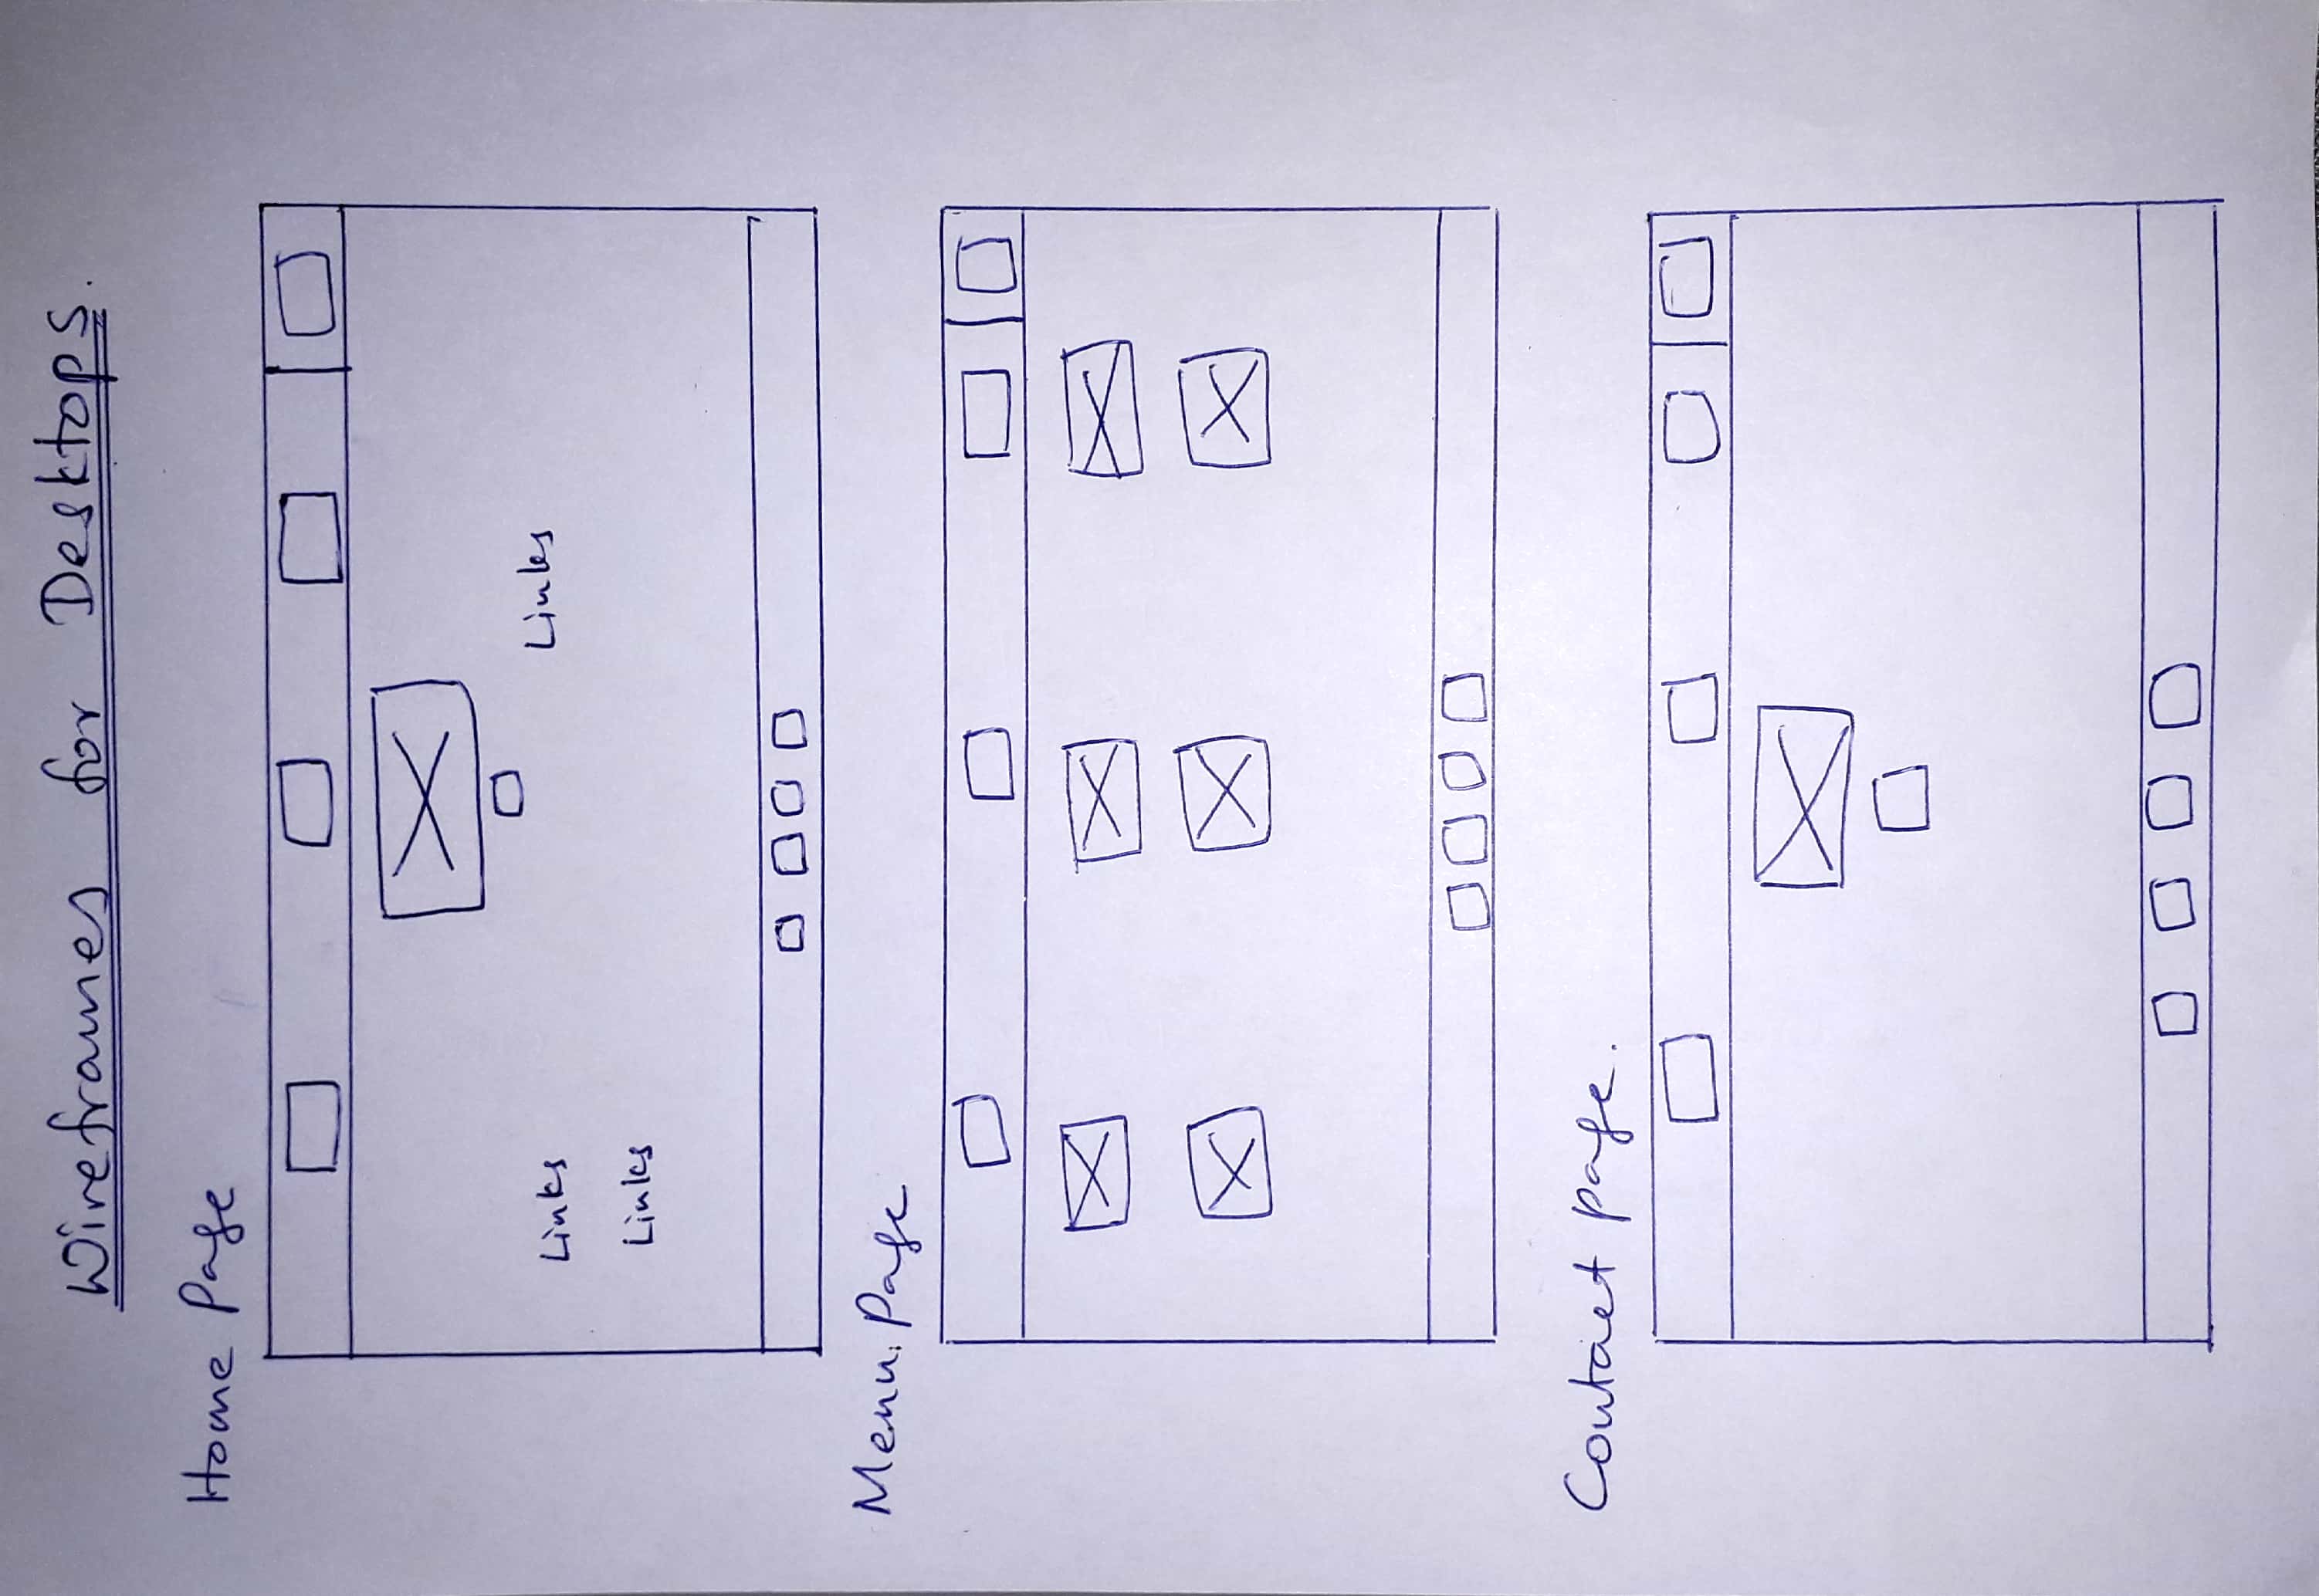 Wireframes for Desktops.
Home Page
Links
Links
Links
Menu Page
Contact Page.